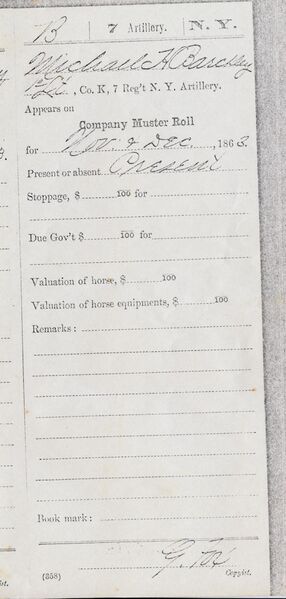 B | 7 Artillery. | N. Y.
Michael H Barckley
1 Lt., Co. K, 7 Reg't N. Y. Artillery.
Appears on
Company Muster Roll
for Nov. & Dec., 1863.
Present or absent Present
Stoppage, $ 100 for
Due Gov't $ 100 for
Valuation of horse, $ 100
Valuation of horse equipments, $ 100
Remarks:
Book mark:
(858) Copyist.